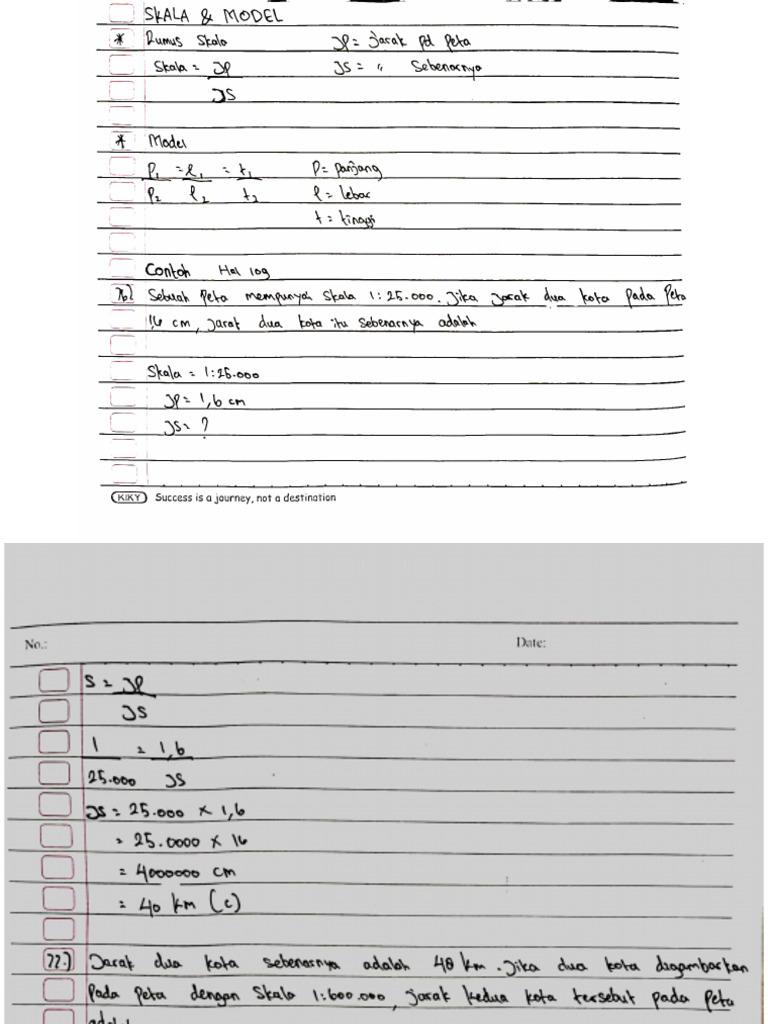 SKALA & MODEL
* Rumus Skala JP = Jarak pd Peta
Skala = JP JS = " Sebenarnya
JS
* Model
P1 = l1 = t1 P = panjang
P2 l2 t2 l = lebar
t = tinggi
Contoh Hal 109
76) Sebuah Peta mempunyai Skala 1:25.000. Jika jarak dua kota pada Peta
1,6 cm, jarak dua kota itu sebenarnya adalah
Skala = 1:25.000
JP = 1,6 cm
JS = ?
KIKY Success is a journey, not a destination
No.: Date:
S = JP
JS
1 = 1,6
25.000 JS
JS = 25.000 x 1,6
= 25.0000 x 16
= 4000000 cm
= 40 km (c)
77.) Jarak dua kota sebenarnya adalah 48 km. Jika dua kota digambarkan
Pada Peta dengan Skala 1:600.000, jarak kedua kota tersebut pada Peta